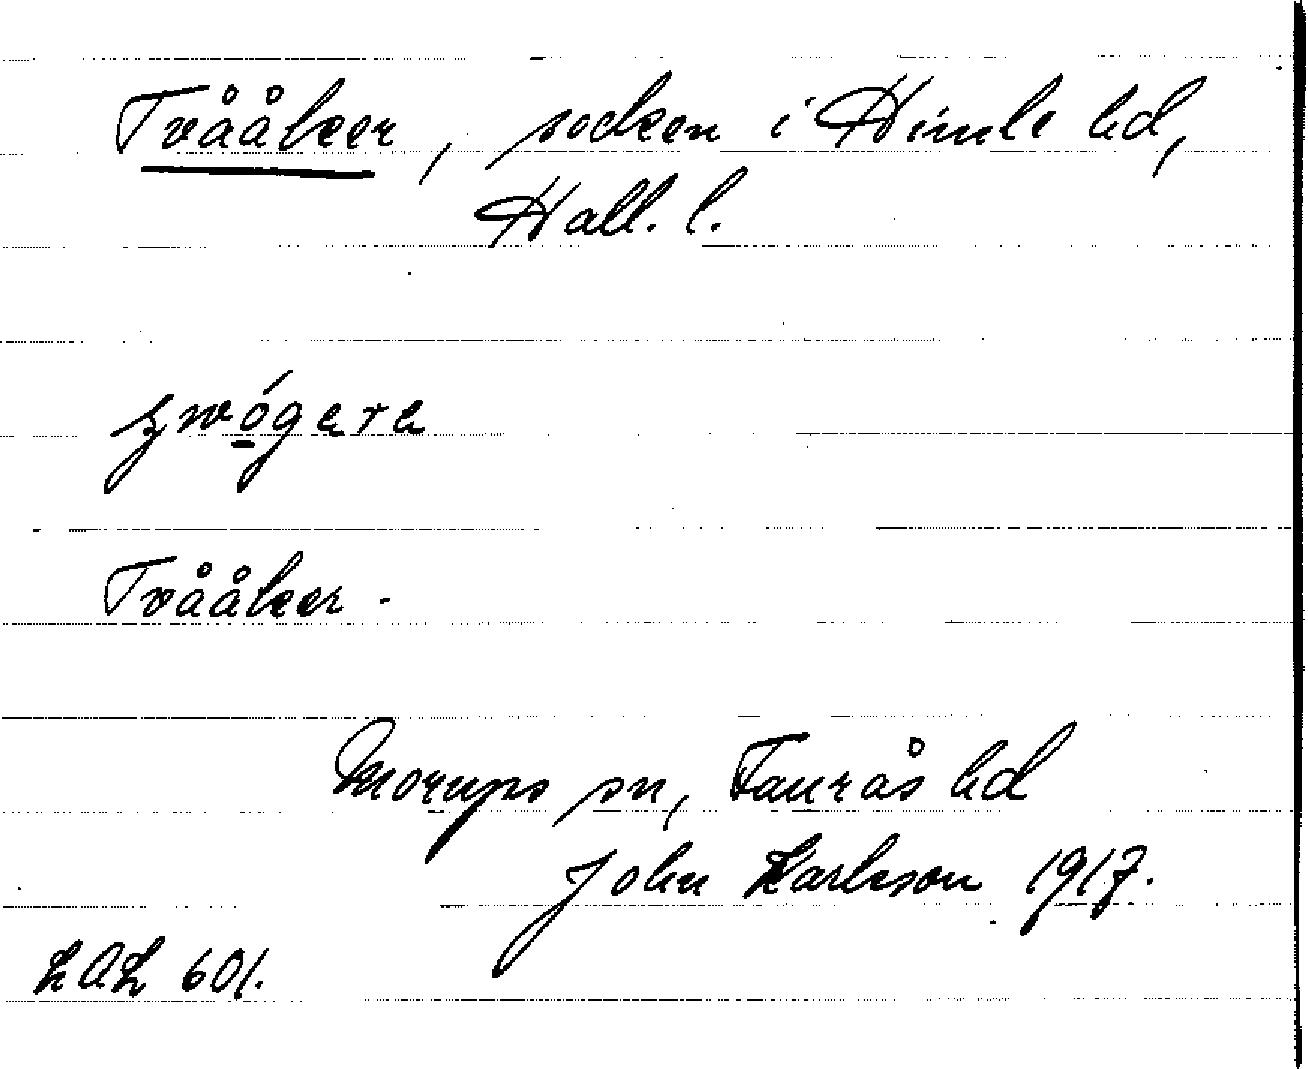 Tvååker, socken i Himle hd,
Hall. l.
Tvååker.
Morups sn, Faurås hd
John Karlsson 1917.
LAL 601.